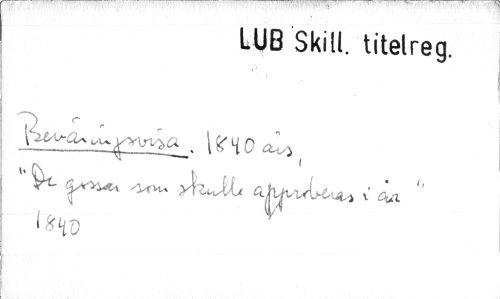 LUB Skill. titelreg.
Beväringsvisa. 1840 års,
"De gossar som skulle approberas i år"
1840